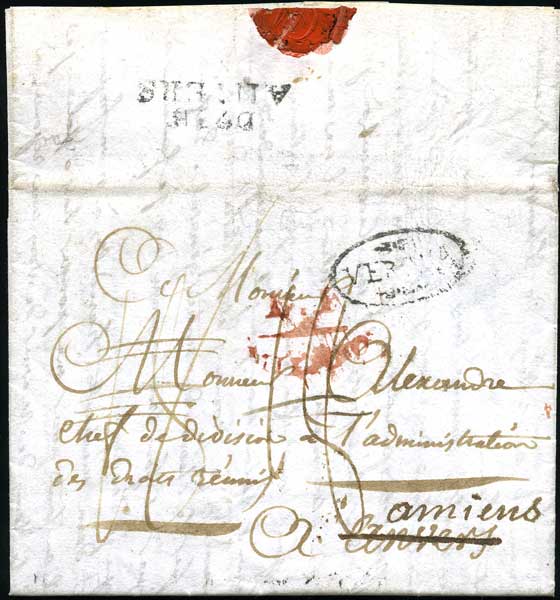 DEB
ANVERS
VER
A Monsieur
Monsieur Alexandre
chef de division a l'administration
des droits réunis
amiens
a anvers